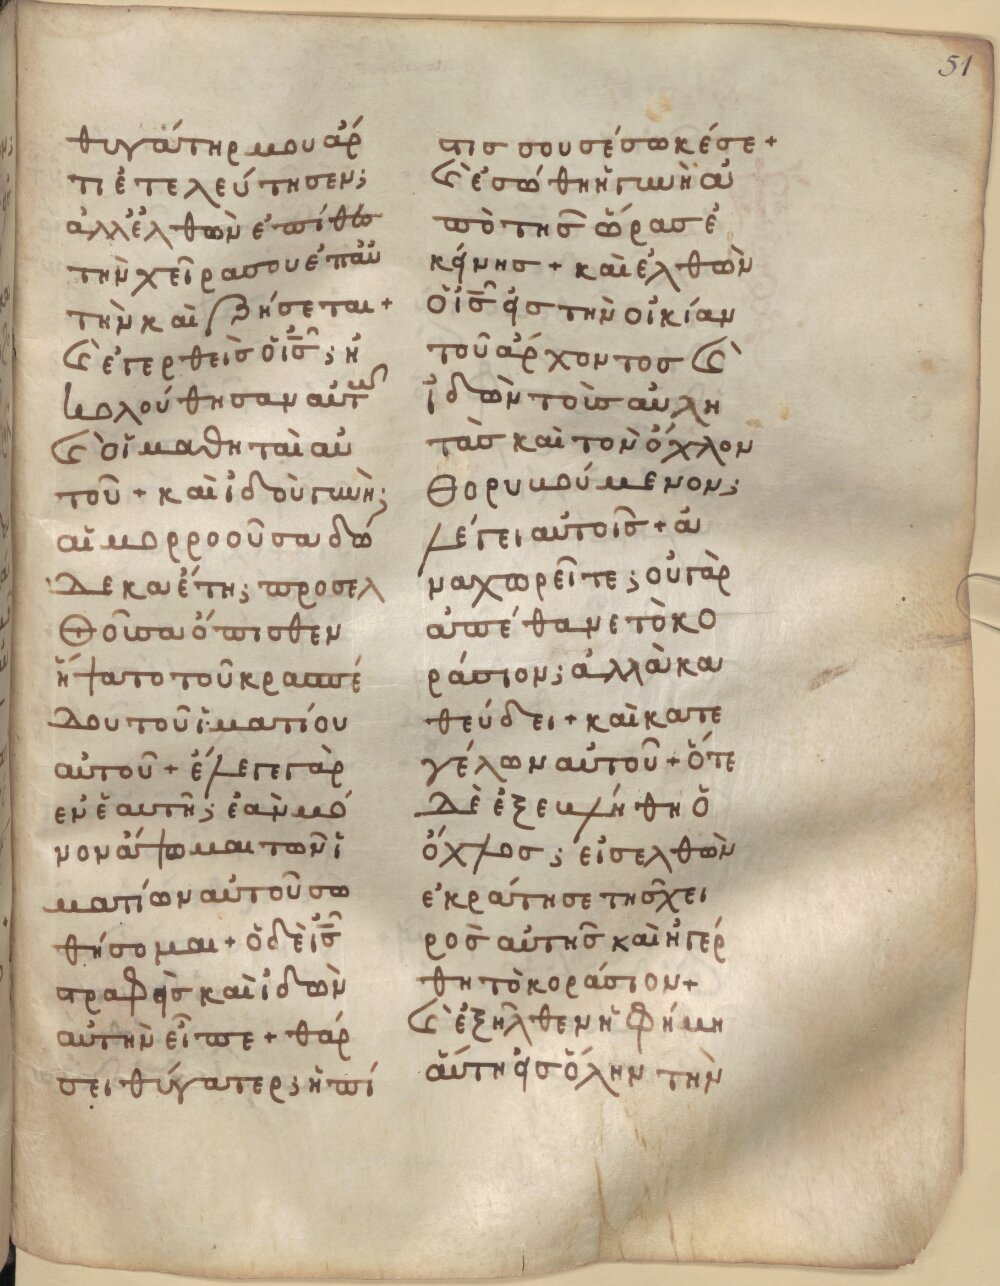 51
θυγάτηρ μου ἄρ
τι ἐτελεύτησεν;
ἀλλ' ἐλθὼν ἐπίθες
τὴν χεῖρα σου ἐπ' αὐ
τὴν καὶ ζήσεται +
Καὶ ἐγερθεὶς ὁ ις̅; ἠ
κολούθησαν αὐτῶ
Καὶ οἱ μαθηταὶ αὐ
τοῦ + καὶ ἰδοὺ γυνὴ;
αἱμορροοῦσα δώ
δεκα ἔτη; προσελ
θοῦσα ὄπισθεν
ἥψατο τοῦ κρασπέ
δου τοῦ ἱματίου
αὐτοῦ + ἔλεγε γὰρ
ἐν ἑαυτῆ; ἐὰν μό
νον ἅψωμαι τῶν ἱ
ματίων αὐτοῦ σω
θήσομαι + ὁ δὲ ις̅
στραφεὶς καὶ ἰδὼν
αὐτὴν εἶπε + θάρ
σει θύγατερ; ἡ πί
στις σου σέσωκέ σε +
Καὶ ἐσώθη ἡ γυνὴ ἀ
πὸ τῆς ὥρας ἐ
κείνης + καὶ ἐλθὼν
ὁ ις̅ εἰς τὴν οἰκίαν
τοῦ ἄρχοντος Καὶ
ἰδὼν τοὺς αὐλη
τὰς καὶ τὸν ὄχλον
θορυβούμενον;
λέγει αὐτοῖς + ἀ
ναχωρεῖτε; οὐ γὰρ
ἀπέθανε τὸ κο
ράσιον; ἀλλὰ κα
θεύδει + καὶ κατε
γέλων αὐτοῦ + ὅτε
δὲ ἐξεβλήθη ὁ
ὄχλος; εἰσελθὼν
ἐκράτησε τῆς χει
ρὸς αὐτῆς καὶ ἠγέρ
θη τὸ κοράσιον +
Καὶ ἐξῆλθεν ἡ φήμη
αὕτη εἰς ὅλην τὴν